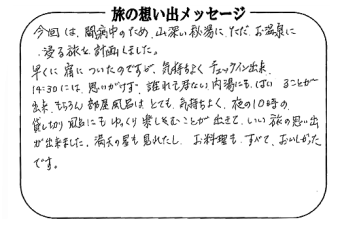 旅の想い出メッセージ
今回は、闘病中のため、山深い秘湯に、ただ、お温泉に
浸る旅を計画しました。
早くに宿についたのですが、気持ちよくチェックイン出来、
14:30には、思いがけず、誰れも居ない内湯にも、はいることが
出来、もちろん部屋風呂は、とても、気持ちよく、夜の10時の
貸し切り風呂にもゆっくり楽しむことが出きて、いい旅の思い出
が出来ました。満天の星も見れたし、お料理も、すべて、おいしかった
です。